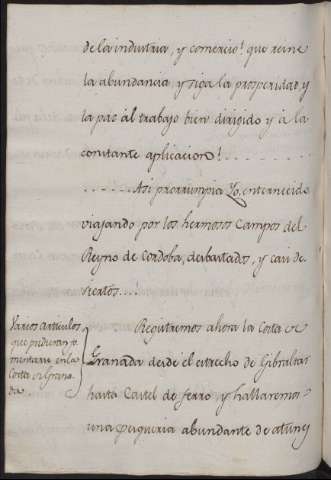 de la industria, y comercio! que reine
la abundancia y siga la prosperidad, y
la paz al trabajo bien dirigido y à la
constante aplicacion! . . . . . . . .
. . . . . . Asi prorrumpia Yo, enternecido
viajando por los hermosos Campos del
Reyno de Cordoba, desbastados, y casi de-
siertos...!
Varios articulos
que pudieran fo-
mentarse en la
Costa de Grana-
da.
Registremos ahora la Costa de
Granada desde el estrecho de Gibraltar
hasta Castel de ferro, y hallaremos
una pesqueria abundante de atunes